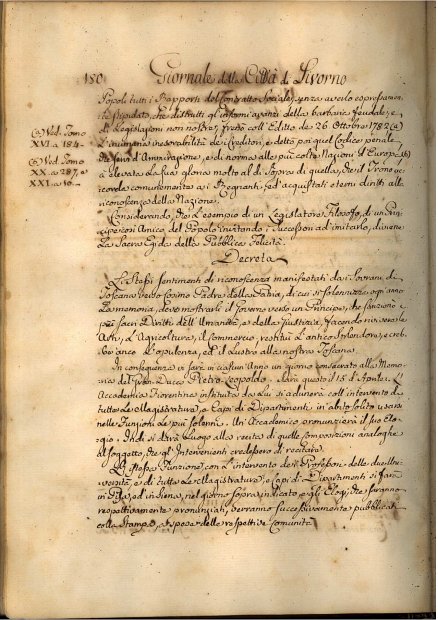 150 Giornale della Città di Livorno
Popoli tutti i Rapporti del Contratto Sociale, senza averlo espressamen
te stipulato, che distrutti gl'informi avanzi della barbarie feudale, e
di Legislazioni non nostre, frenò coll'Editto de' 26 Ottobre 1782 (a)
L'inumana inesorabilità de' Creditori, e dettò poi quel Codice penale
che farà l'Ammirazione, e di norma alle più colte Nazioni d'Europa (b)
à elevata La sua gloria molto al di sopra di quella, che il Trono
ricorda comunemente a i Regnanti, ed acquistati eterni diritti alla
riconoscenza della Nazione.
(a) Ved. Tomo
XVI. a 184.
(b) Ved. Tomo
XX. a 287, e
XXI. a 10.
Considerando, che L'esempio di un Legislatore Filosofo, di un Prin
cipe Amico del Popolo invitando i Successori ad imitarlo, diviene
La Sacra Egida della Pubblica Felicità.
Decreta
Li Stessi sentimenti di riconoscenza manifestati da i Sovrani di
Toscana verso Cosimo Padre della Patria, di cui si solennizza ogni anno
La memoria, deve mostrarli il Governo verso un Principe, che sanzionò i
più sacri Diritti dell'Umanità, e della Giustizia, facendo rivivere le
Arti, L'Agricoltura, il Commercio, restituì L'antico splendore, e creb
be anco L'opulenza, ed il Lustro alla nostra Toscana.
In conseguenza vi sarà in ciascun Anno un giorno consacrato alla Memo
ria del Gran Duca Pietro Leopoldo. Sarà questo il 15 d'Aprile. L'
Accademia Fiorentina instituita da Lui si adunerà coll'intervento di
tutte Le Magistrature, e Capi di Dipartimenti in abito solito usarsi
nelle Funzioni Le più solenni. Un Accademico pronunzierà il suo Elo
gio. Indi si darà Luogo alla recita di quelle composizioni analoghe
al soggetto, che gl'Intervenienti credessero di recitare.
L'istessa Funzione, con L'intervento de i Professori delle due Uni
versità, e di tutte Le Magistrature, e Capi di Dipartimenti si farà
in Pisa, ed in Siena, nel giorno sopra indicato, e gli Elogi, che saranno
respettivamente pronunziati, verranno successivamente pubblicati
colla Stampa, a spese delle respettive Comunità.